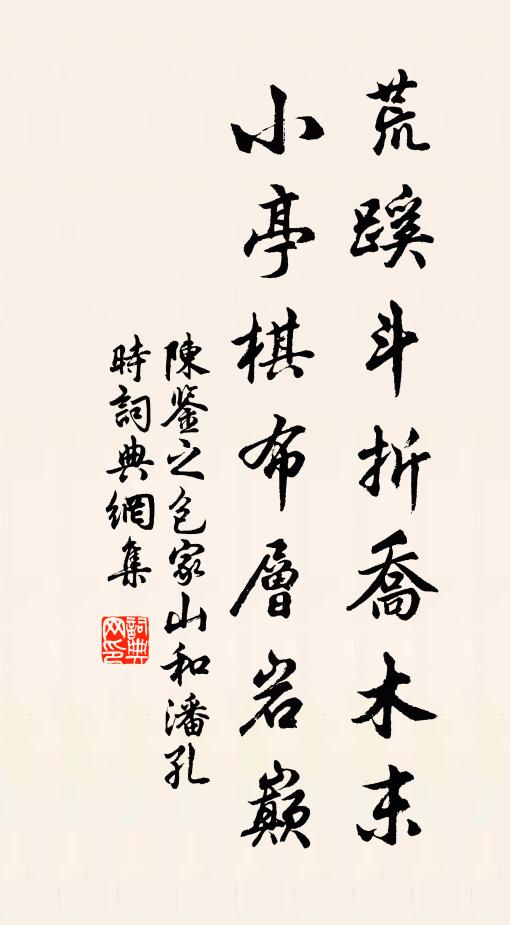 荒蹊斗折喬木末
小亭棋布層岩巔
陳鑒之包家山和潘孔
時詞典網集
詞典网印